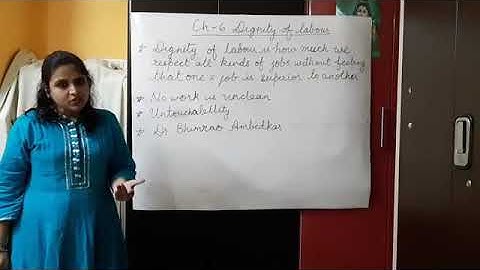 Ch-6 Dignity of labour
* Dignity of labour is how much we
respect all kinds of jobs without feeling
that one job is superior to another
* No work is unclean
* Untouchability
* Dr Bhimrao Ambedkar